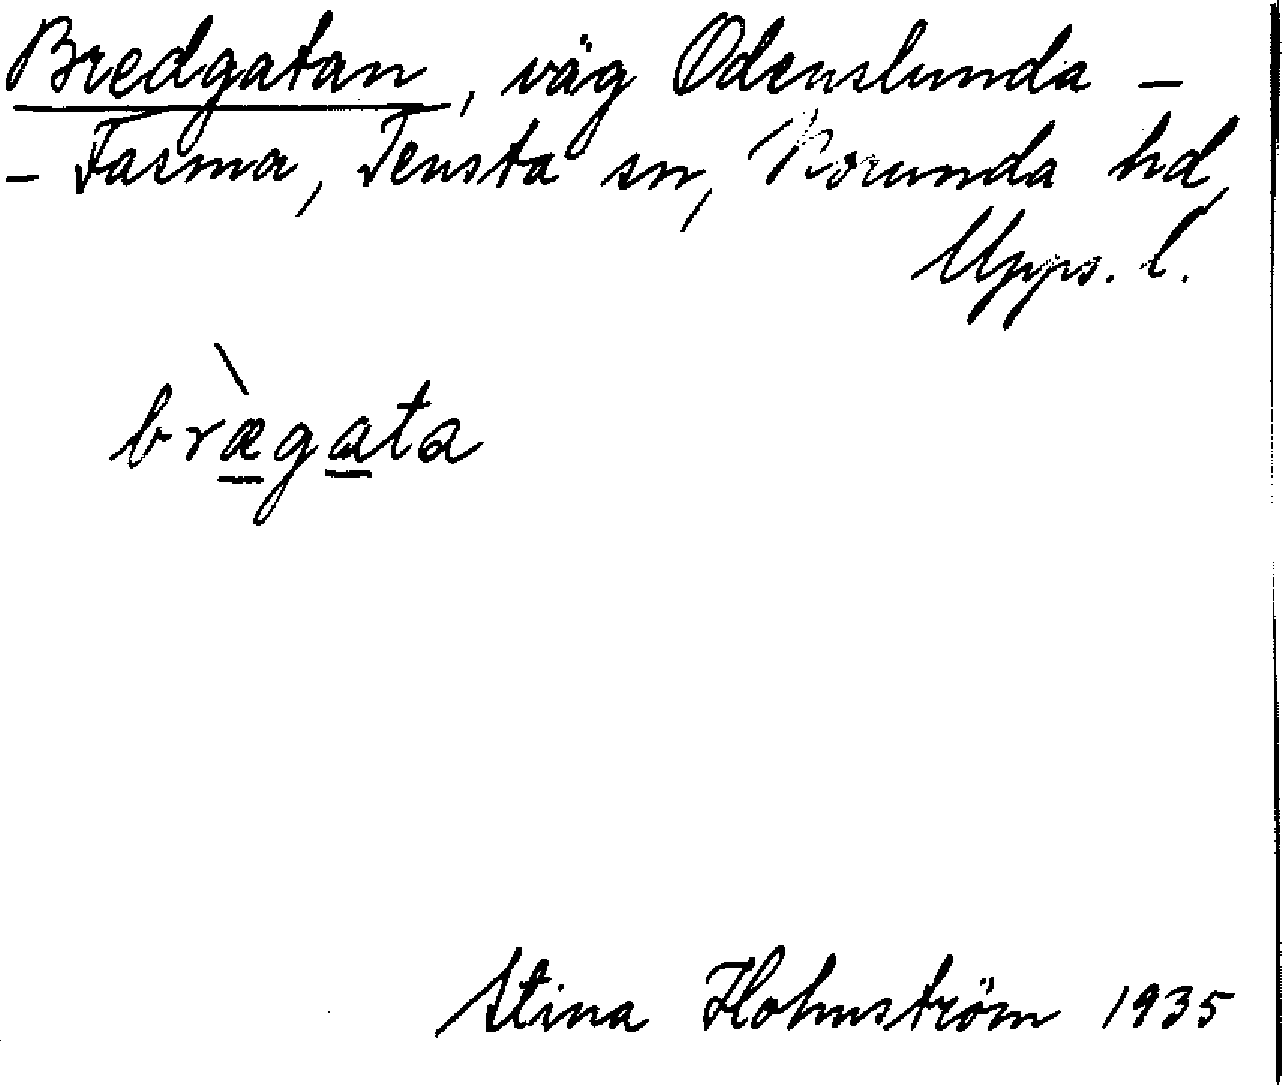 Bredgatan, väg Odenslunda –
– Fasma, Tensta sn, Norunda hd,
Upps. l.
bræ̀gata
Stina Holmström 1935